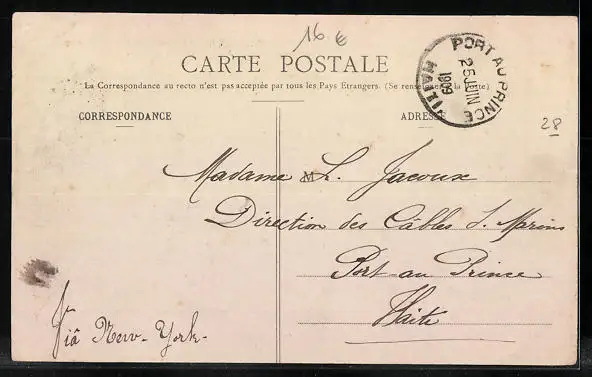 16 €
CARTE POSTALE
La Correspondance au recto n'est pas acceptée par tous les Pays Etrangers. (Se renseigner à la Poste)
PORT AU PRINCE
25 JUIN
1909
HAITI
CORRESPONDANCE
ADRESSE
28
Madame L. Jacoux
M
Direction des Câbles S. Marins
Port-au Prince
Haïti
Viâ New-York-